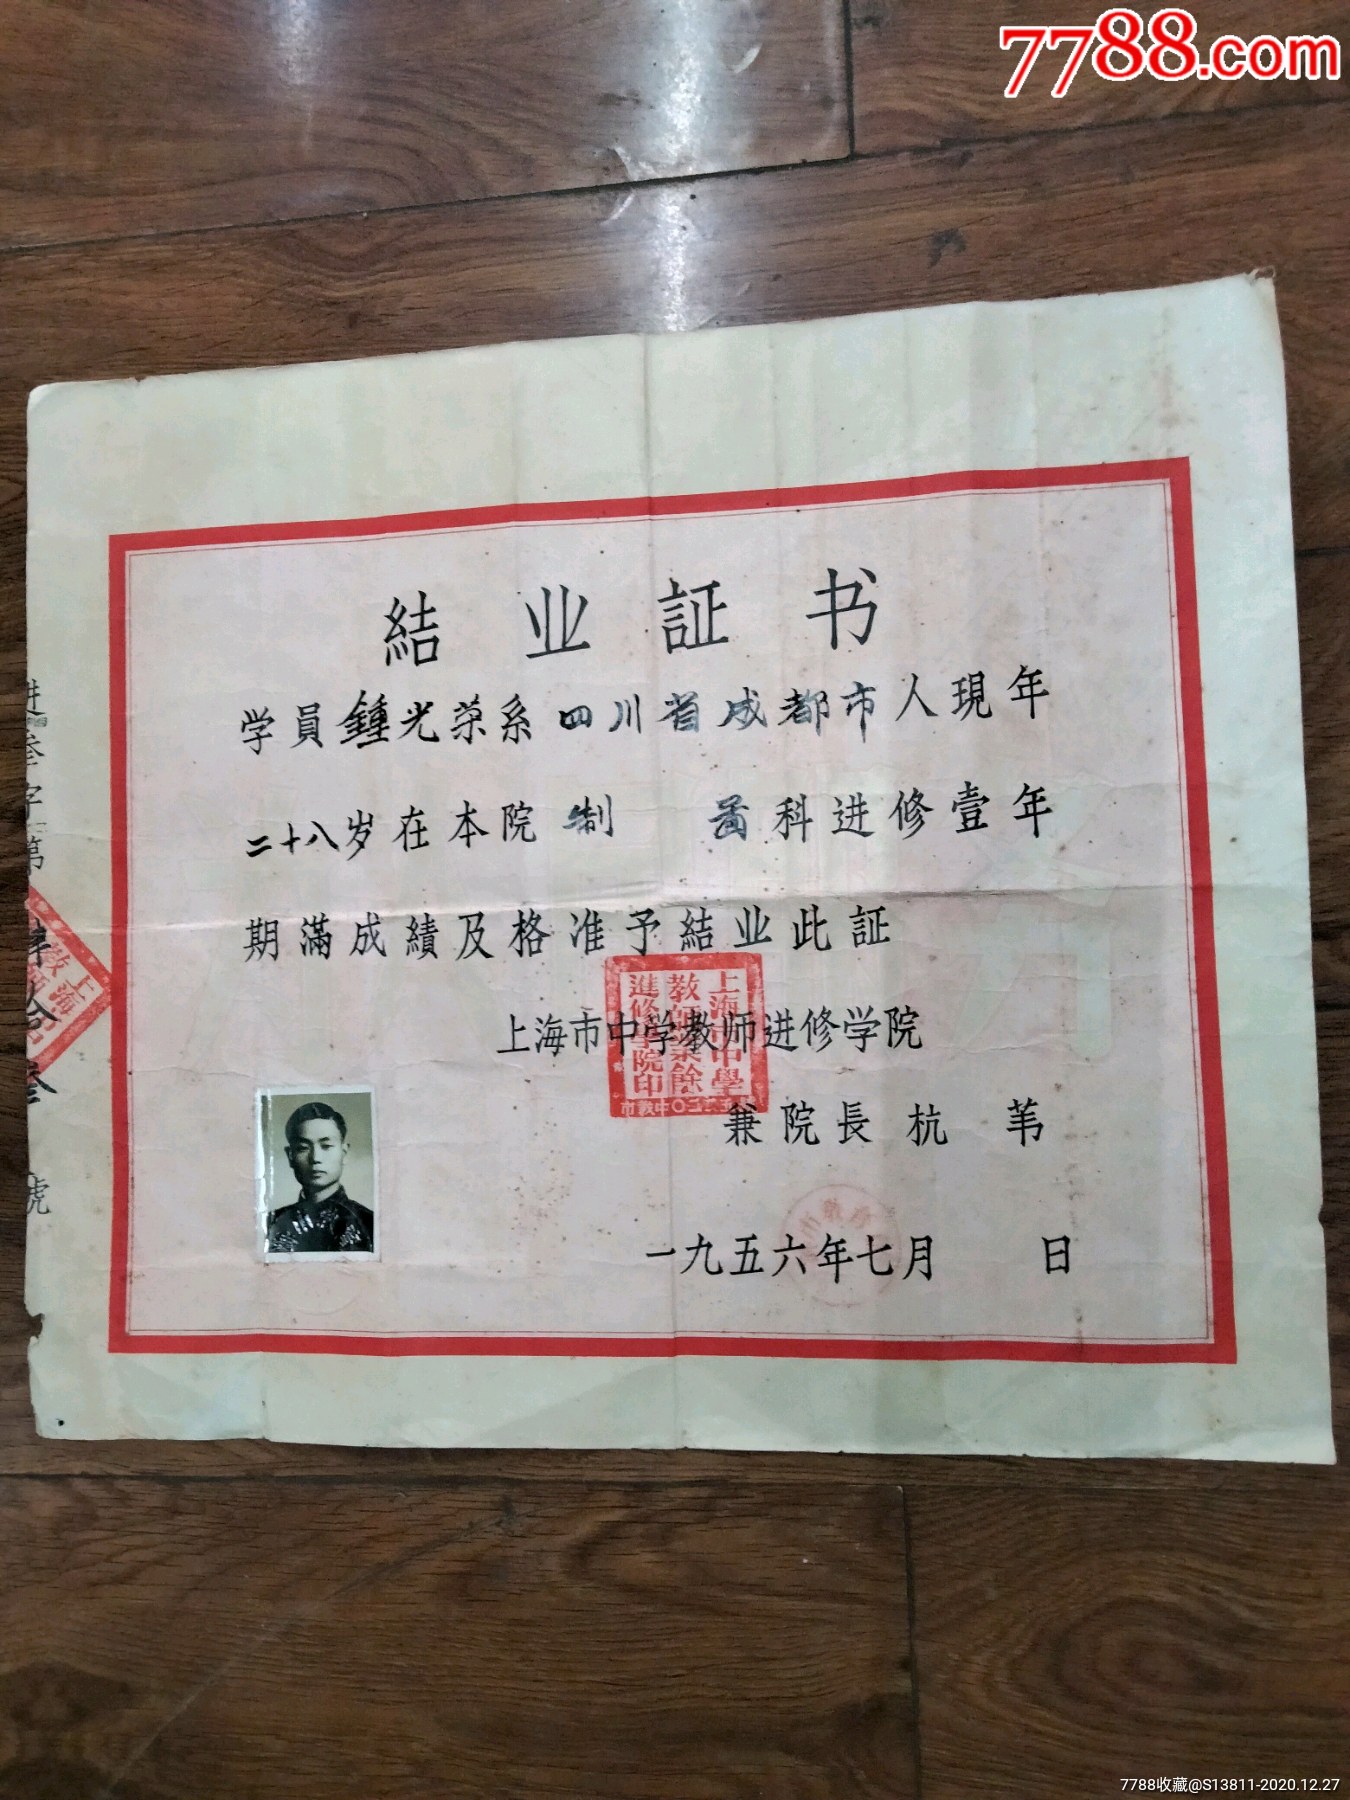 7788.com
結业証书
学員鍾光荣系四川省成都市人現年
二十八岁在本院制 啚科进修壹年
期滿成績及格准予結业此証
上海市中学教师进修学院
兼院長杭 苇
一九五六年七月 日
上海市中學
教師業餘
進修學院印
进叁字第
拾叁號
7788收藏@S13811-2020.12.27